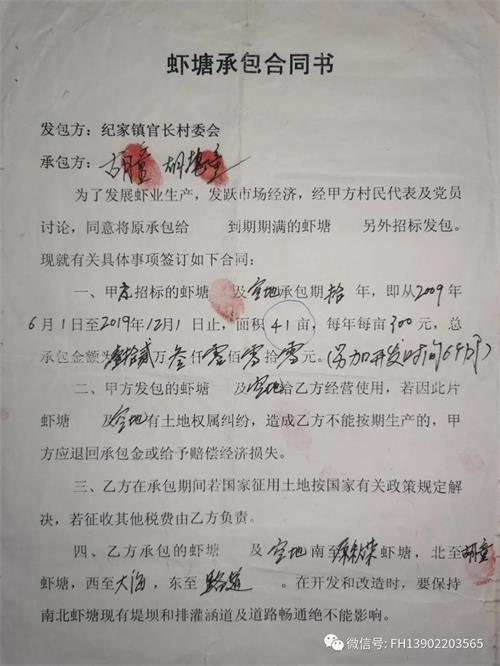 虾塘承包合同书
发包方：纪家镇官长村委会
承包方：胡
为了发展虾业生产，发跃市场经济，经甲方村民代表及党员
讨论，同意将原承包给 到期期满的虾塘 另外招标发包。
现就有关具体事项签订如下合同：
一、甲方招标的虾塘 及空地承包期拾年，即从2009年
6月1日至2019年12月1日止，面积41亩，每年每亩300元，总
承包金额为 万叁仟零佰零拾零元。（另加开发时间6个月）
二、甲方发包的虾塘 及空地给乙方经营使用，若因此片
虾塘 及空地有土地权属纠纷，造成乙方不能按期生产的，甲
方应退回承包金或给予赔偿经济损失。
三、乙方在承包期间若国家征用土地按国家有关政策规定解
决，若征收其他税费由乙方负责。
四、乙方承包的虾塘 及空地南至 虾塘，北至
虾塘，西至大海，东至路道。在开发和改造时，要保持
南北虾塘现有堤坝和排灌涵道及道路畅通绝不能影响。
微信号: FH13902203565